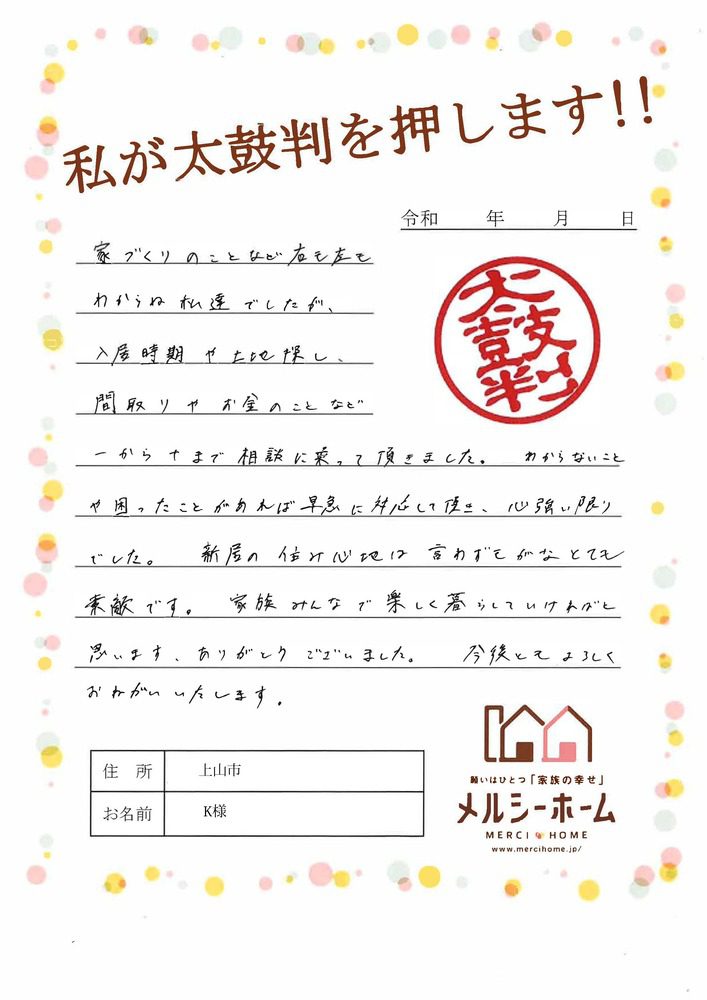 私が太鼓判を押します!!
令和　年　月　日
家づくりのことなど右も左も
わからぬ私達でしたが、
入居時期や土地探し、
間取りやお金のことなど
一から十まで相談に乗って頂きました。　わからないこと
や困ったことがあれば早急に対応して頂き、心強い限り
でした。　新居の住み心地は言わずもがなとても
素敵です。　家族みんなで楽しく暮らしていければと
思います、ありがとうございました。　今後ともよろしく
おねがいいたします。
太鼓判
住所　上山市
お名前　K様
願いはひとつ「家族の幸せ」
メルシーホーム
MERCI HOME
www.mercihome.jp/